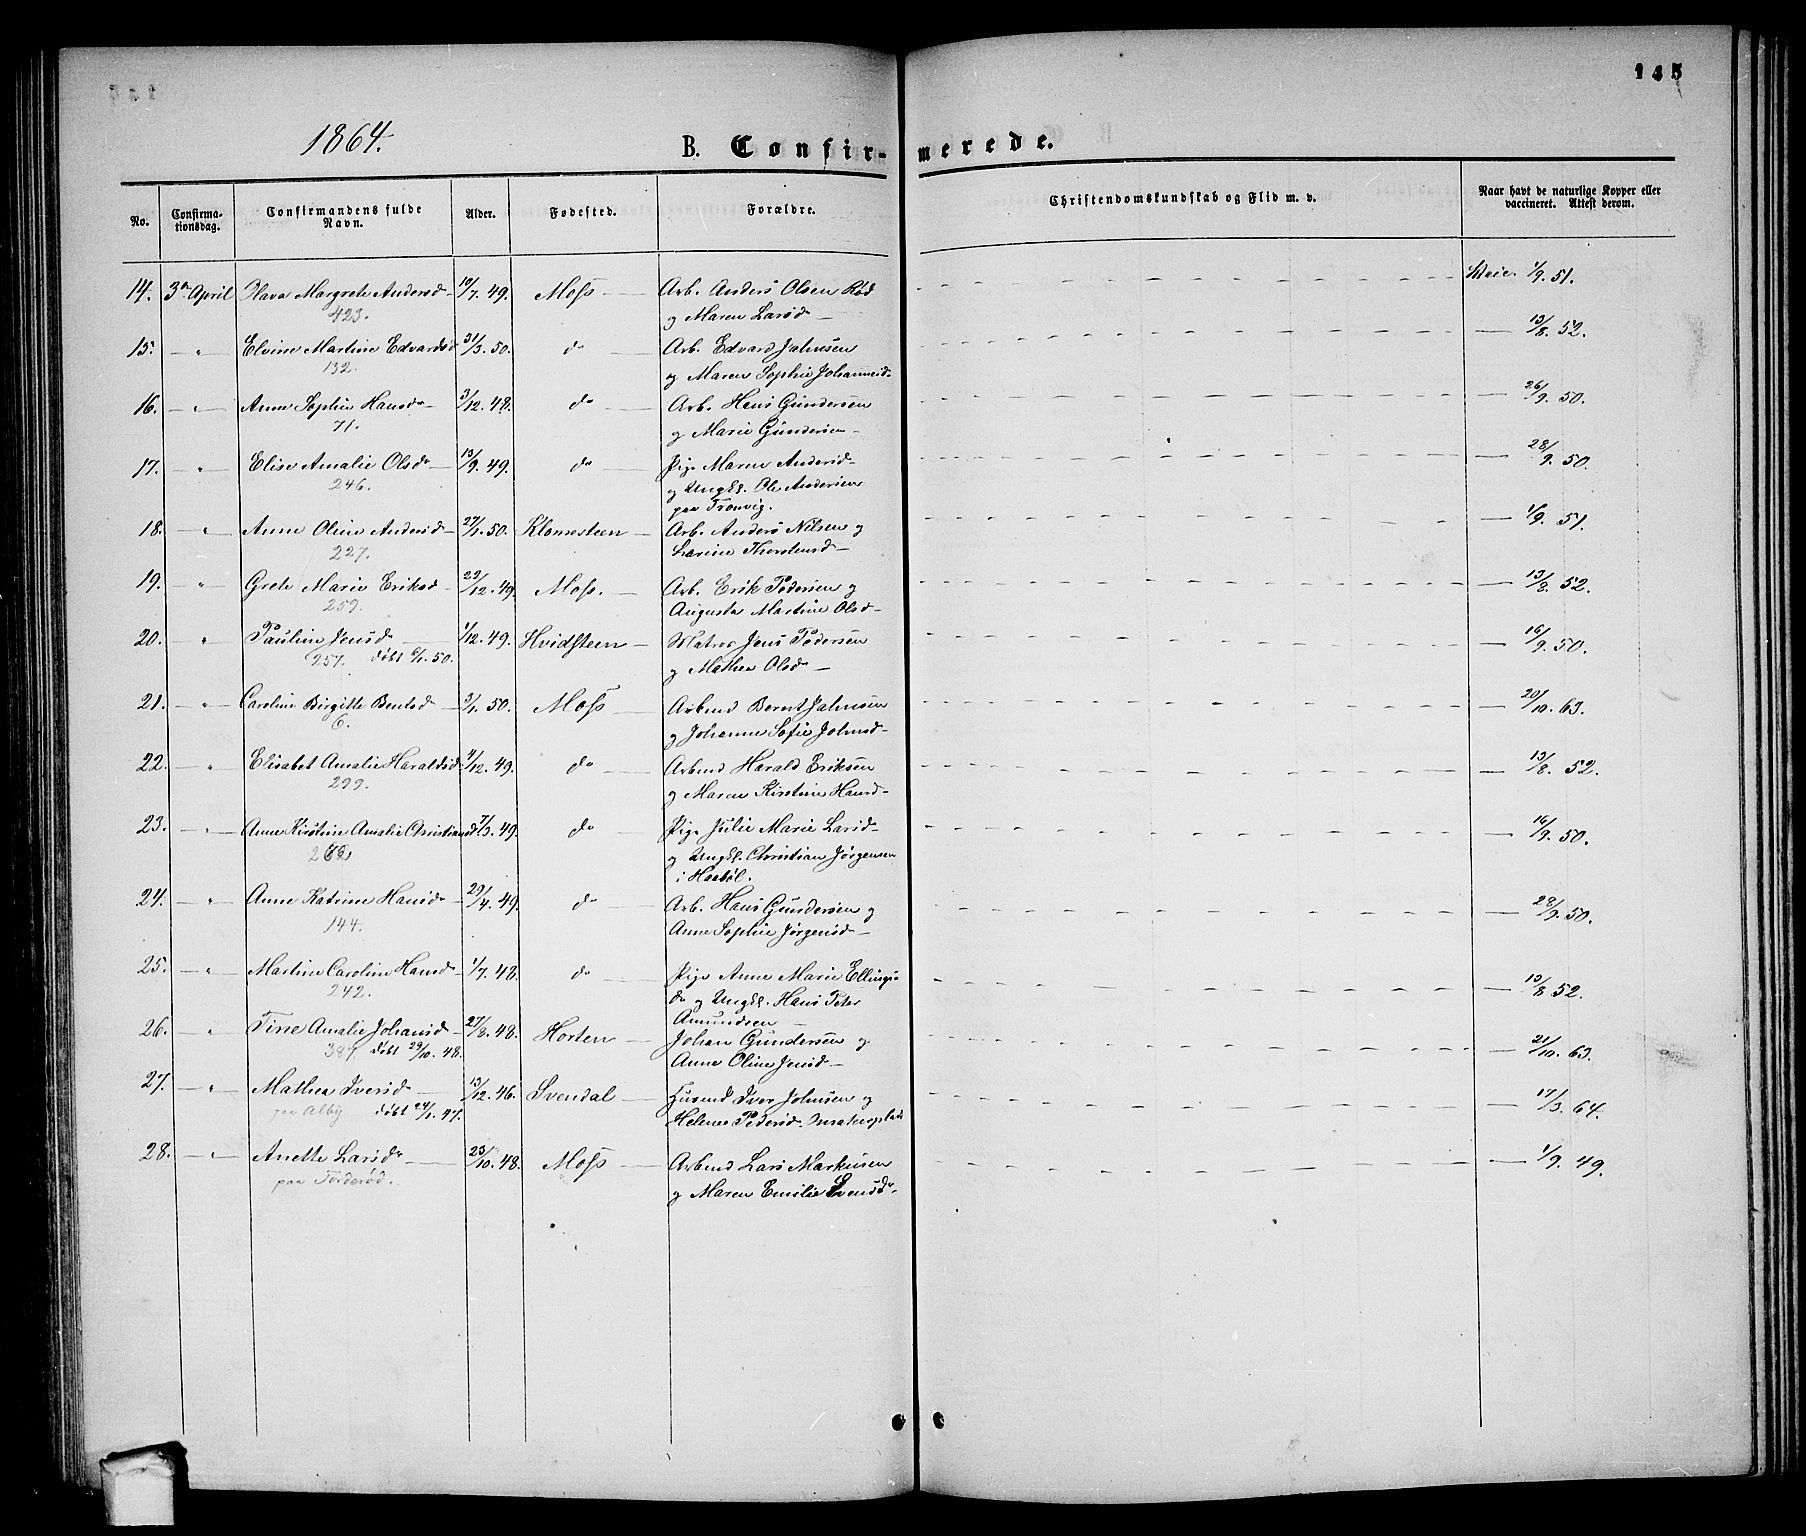 145
1864.
B. Confirmerede.
No. Confirmationsdag. Confirmandens fulde Navn. Alder. Fødested. Forældre. Christendomskundskab og Flid m. v. Naar havt de naturlige Kopper eller vaccineret. Attest derom.
14. 3die April Olava Margrete Andersd 19/7. 49. Moss Arb. Anders Olsen Rød 1/9. 51.
423. og Maren Larsd
15. — " — Elvine Martine Edvardsd 31/3. 50. do Arb. Edvard Jahnsen — 13/8. 52.
132. og Maren Sophie Johannesd
16. — " — Anne Sophie Hansdr 3/12. 48. do Arb. Hans Gundersen — 26/9. 50.
71. og Marie Gundersen
17. " Elise Amalie Olsdr 13/9. 49. do Pige Maren Andersd — 28/9. 50.
246. og Ungkl. Ole Andersen
paa Tronvig.
18. — " — Anne Oline Andersd 27/1. 50. Klommesteen Arb. Anders Nilsen og — 1/9. 51.
227. Larine Thorstensd
19. — " Grete Marie Eriksd 29/12. 49. Moss. Arb. Erik Pedersen og — 13/8. 52.
259. Augusta Martine Olsd
20. " Pauline Jensdr 1/12. 49. Hvidsteen Matros Jens Pedersen — 16/9. 50.
257. døbt 6/1. 50. og Mathea Olsdr
21. — " — Caroline Birgitte Bentsd 3/1. 50. Moss Arbmd Bernt Jahnsen — 20/10. 63.
6. og Johanne Sofie Johnsd
22. " Elisabet Amalie Haraldsd 4/12. 49. do Arbmd Harald Eriksen — 13/8. 52.
299. og Maren Kirstine Hansd
23. — " — Anne Kirstine Amalie Christiansd 7/3. 49. do Pige Julie Marie Larsd — 16/9. 50.
og Ungkl. Christian Jørgensen
i Haabøl.
24. — " — Anne Katrine Hansdr 29/4. 49. do Arb. Hans Gundersen og — 28/9. 50.
144. Anne Sophie Jørgensd
25. — " — Martine Caroline Hansdr 1/7. 48. do Pige Anne Marie Ellings- — 13/8 52.
242. dr og Ungkl. Hans Peter
Amundsen
26. " Tine Amalie Johansd 27/8. 48. Horten Johan Gundersen og — 21/10. 63.
387 døbt 29/10. 48. Anne Oline Jensd
27. — " — Mathea Iversdr 13/12. 46. Svendal Husmd Iver Johnsen og — 17/3. 64.
paa Alby døbt 24/1. 47. Helene Pedersd.
28. — " — Anette Larsdr 23/10. 48. Moss Arbmd Lars Markusen — 1/9. 49.
paa Torderød. og Maren Emilie Svensdr